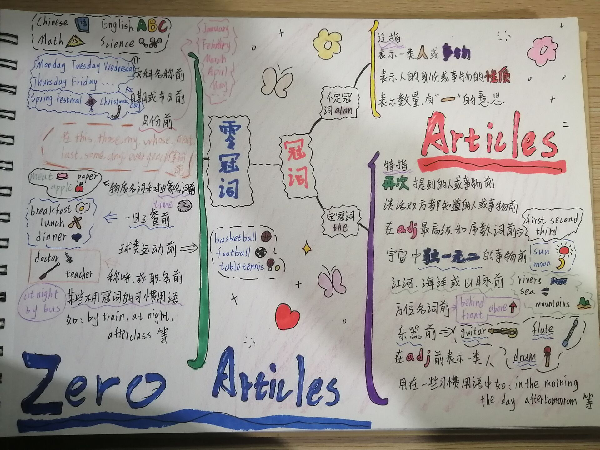 Chinese English ABC
Math Science
January
February
March
April
May
Monday Tuesday Wednesday
Thursday Friday
Spring Festival Christmas
月份前
paper
apple
breakfast
lunch
dinner
三餐前
球类运动前
doctor
teacher
称呼或职名前
at night
by bus
某些不用冠词的习惯用语
如: by train, at night,
after class 等
Zero Articles
零冠词
冠词
不定冠
词a/an
定冠词
the
basketball
football
table tennis
泛指
表示一类人或事物
表示人的身份或事物的性质
表示数量有"一"的意思
Articles
特指
再次提到的人或事物前
谈话双方都知道的人或事物前
在adj最高级和序数词前
first second
third
宇宙中独一无二的事物前
sun
moon
江河、海洋或山脉前
rivers
sea
mountains
方位名词前
behind
front
above
乐器前
guitar
flute
drum
在adj前表示一类人
用在一些习惯用语中如: in the morning
the day after tomorrow 等